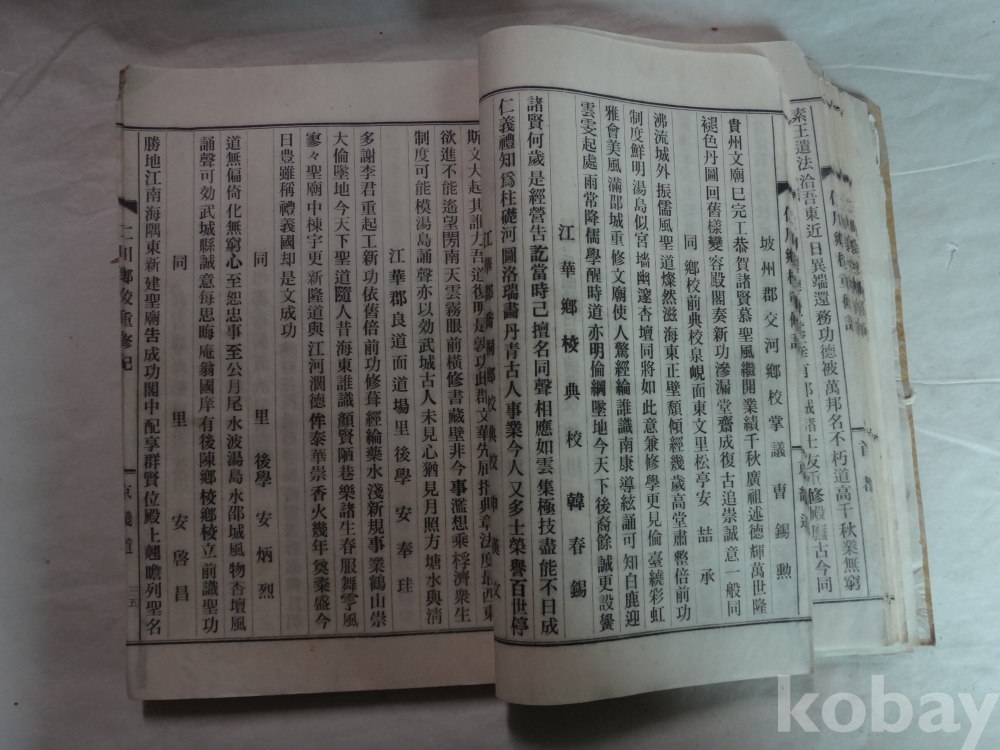 素王遺法洽吾東近日異端還務功德被萬邦名不朽道高千秋業無窮
坡州郡交河鄉校掌議 曺錫勲
貴州文廟已完工恭賀諸賢慕聖風繼開業績千秋廣祖述德輝萬世隆
褪色丹圖回舊樣變容殿閣奏新功滲漏堂齋成復古追崇誠意一般同
同 鄉校前典校泉峴面東文里松亭安喆承
沸流城外振儒風聖道燦然滋海東正壁頹傾經幾歲高堂肅整倍前功
制度鮮明湯島似宮墻幽邃杏壇同將如此意兼修學更見倫臺繞彩虹
雅會美風滿邵城重修文廟使人驚經綸誰識南康導絃誦可知白鹿迎
雲雯起處雨常降儒學醒時道亦明倫綱墜地今天下後裔餘誠更設黌
江華鄉校典校韓春錫
諸賢何歲是經營告訖當時己擅名同聲相應如雲集極技盡能不日成
仁義禮知爲柱礎河圖洛瑞畵丹靑古人事業今人又多士榮譽百世停
斯文大起其誰力吾道復明是敦功此群文華先
欲進不能遙望閉南天雲霧眼前橫修書藏壁非今事濫想乘桴濟衆生
制度可能模湯島誦聲亦以効武城古人未見心猶見月照方塘水與淸
江華郡良道面道場里後學 安奉珪
多謝李君重起工新功依舊倍前功修葺經綸藥水淺新規事業鶴山崇
大倫墜地今天下聖道隨人昔海東誰識顏賢陋巷樂諸生春服舞雩風
寥々聖廟中棟宇更新隆道與江河濶德侔泰華崇香火幾年奠粢盛今
日豊雖稱禮義國却是文成功
同 里 後學 安炳烈
道無偏倚化無窮心至恕忠事至公月尾永波湯島水邵城風物杏壇風
誦聲可効武城縣誠意每思思晦庵翁國庠有後陳鄉校鄉校立前識聖功
同 里 安啓昌
勝地江南海隅東新建聖廟告成功閣中配享群賢位殿上趨瞻列聖名
仁川鄉校重修記
京畿道
三五
kobay